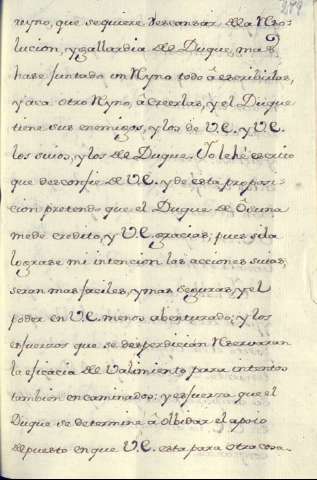 reyno, que se quiere descansar de la Reso-
lucion, y gallardia de Duque, mas
hase juntado un Ryno todo â escribirlas,
y aca otro Ryno, â Creerlas, y el Duque
tiene sus enemigos, y los de V.E. y V.E.
los suios, y los del Duque. Yo le hé escrito
que desconfie de V.E. y de esta proposi-
cion pretendo que el Duque de Osuna
me dé credito, y V.E. gracias; pues si la
lograse mi intencion las acciones suias,
seran mas faciles, y mas seguras, y el
poder en V.E. menos abenturado; y los
esfuerzos que se desperdician Reservaran
la eficacia del Valimiento para intentos
tambien encaminados; y es fuerza que el
Duque se determine â olbidar el apoio
del puesto en que V.E. esta para otra cosa.